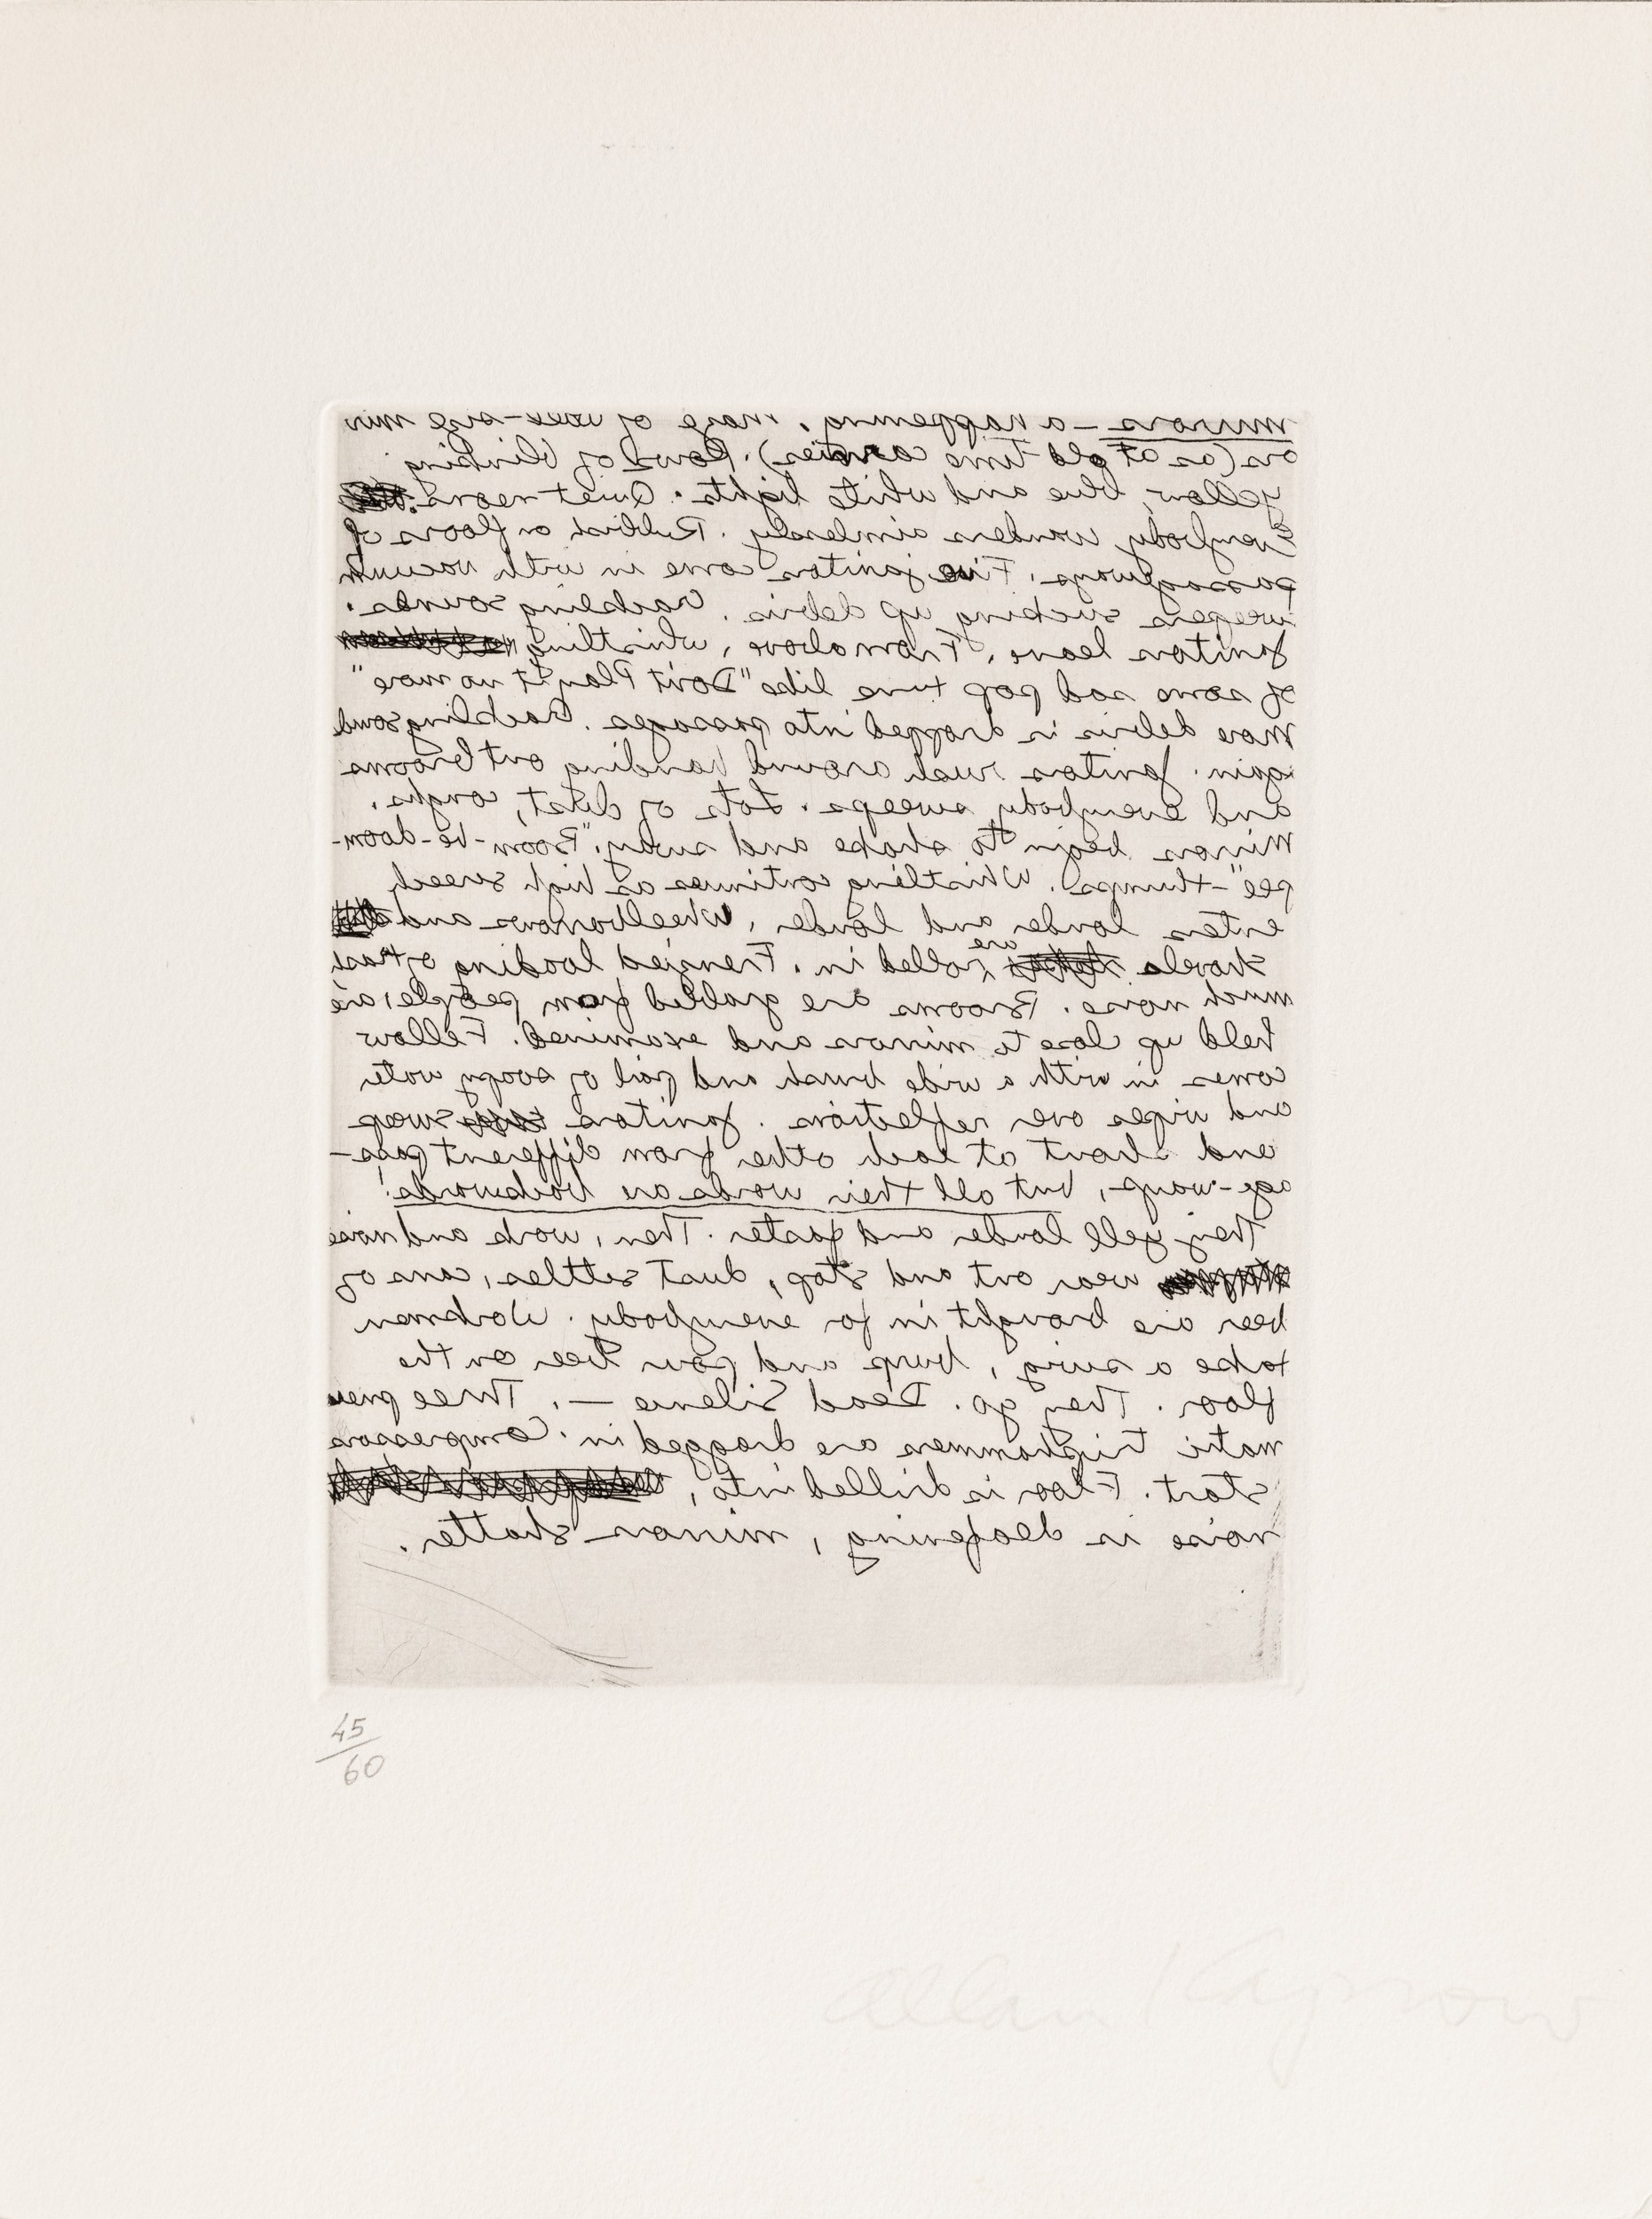 mirrors - a happening. Maze of wall-size mirr
ors (as at old time carnies). Rows of blinking
yellow, blue and white lights. Quiet neons.
Everybody wanders aimlessly. Rubbish on floors of
passageways. Five janitors come in with vacuum
sweepers sucking up debris. Crackling sounds.
Janitors leave. From above, whistling
of some sad pop tune like "Don't Play It no more"
More debris is dropped into passages. Crackling sound
again. Janitors rush around handing out brooms
and everybody sweeps. Lots of dust, coughs.
Mirrors begin to shake and sway. "Boom-be-doom-
pee"-thumps. Whistling continues as high screech
enters louder and louder. Wheelbarrows and
shovels are rolled in. Frenzied loading of trash
much noise. Brooms are grabbed from people, are
held up close to mirrors and examined. Fellow
comes in with a wide brush and pail of soapy wate
and wipes over reflections. Janitors sweep
and shout at each other from different pass-
age-ways, but all their words are backwards!
They yell louder and faster. Then, words and noise
wear out and stop, dust settles, cans of
beer are brought in for everybody. Workmen
take a swig, burp and pour beer on the
floor. They go. Dead Silence —. Three pneu
matic triphammers are dragged in. Compressors
start. Floor is drilled into,
noise is deafening, mirrors shatter.
45/60
Allan Kaprow